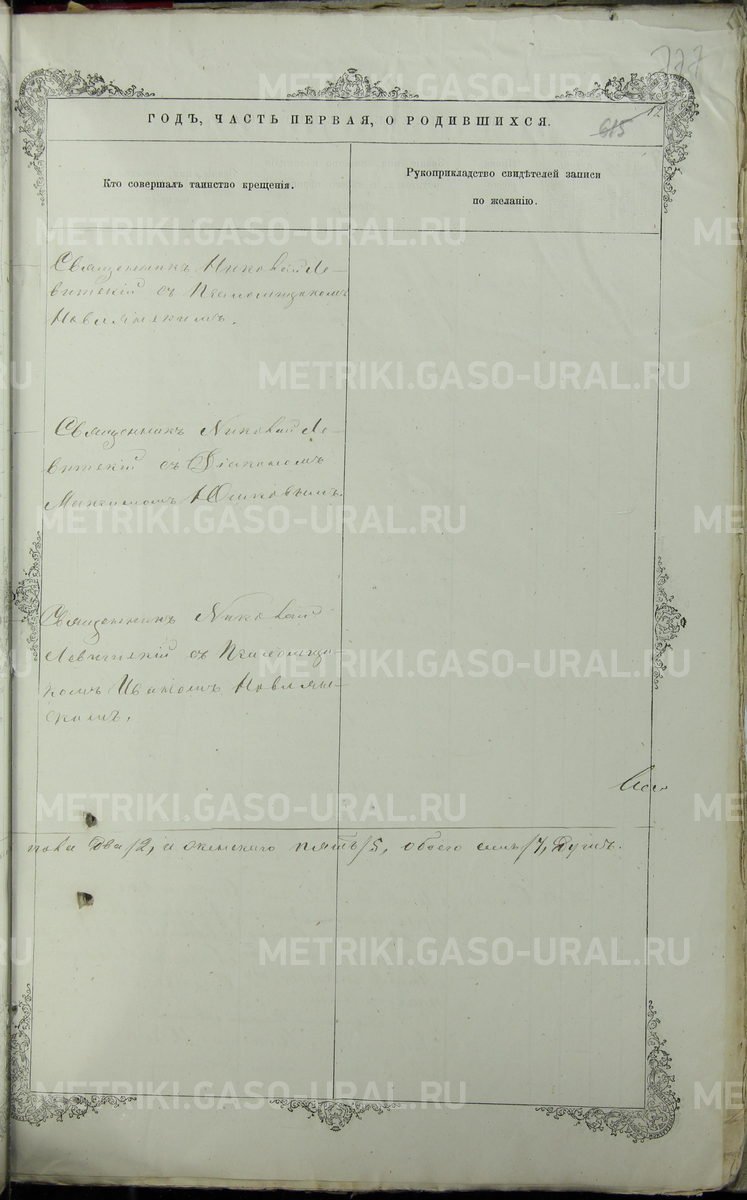 777
12
615
ГОДЪ, ЧАСТЬ ПЕРВАЯ, О РОДИВШИХСЯ.
Кто совершалъ таинство крещенія.
Рукоприкладство свидѣтелей записи
по желанію.
Священникъ Николай Ле-
витскій съ Псаломщикомъ
Священникъ Николай Ле-
витскій съ Діакономъ
Максимомъ Юшковымъ.
Священникъ Николай
Левитскій съ Псаломщи-
комъ Иваномъ
пола два/2, а женскаго пять/5, обоего семь/7, душъ.
METRIKI.GASO-URAL.RU